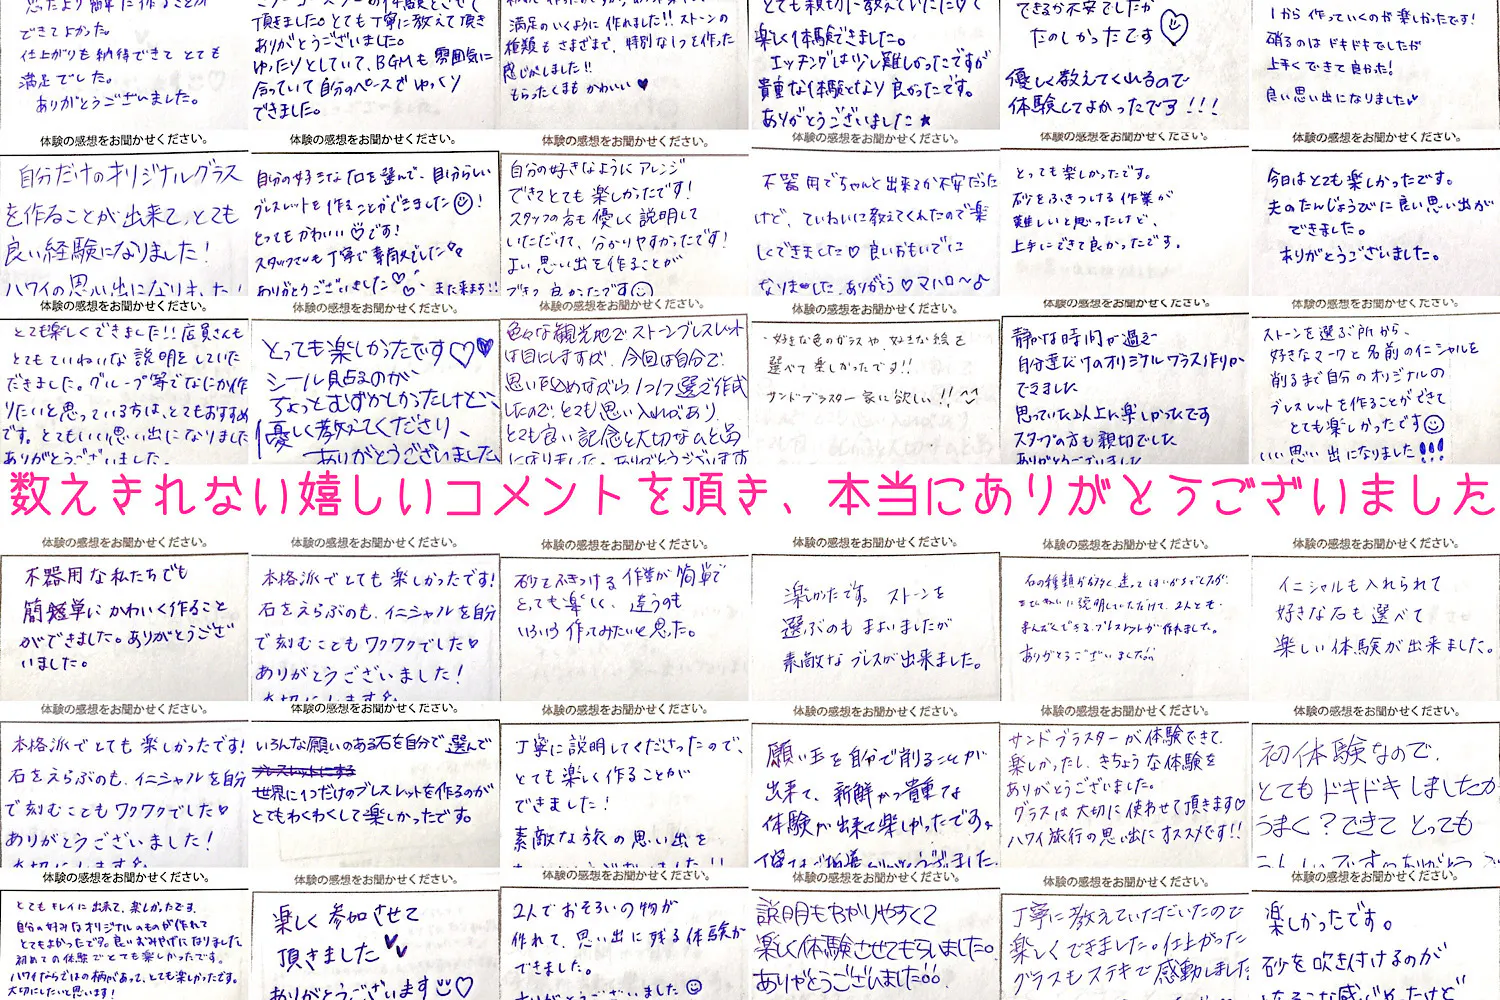 思ったより簡単に作ることが
できてよかった。
仕上がりも納得できてとても
満足でした。
ありがとうございました。
頂きました。とても丁寧に教えて頂き
ありがとうございました。
ゆったりとしていて、BGMも雰囲気に
合っていて自分のペースでゆっくり
できました。
満足のいくように作れました!!ストーンの
種類もさまざまで、特別な1つを作った
感じがしました!!
もらったくまもかわいい♥
とても親切に教えていただいて
楽しく体験できました。
エッチングは少し難しかったですが
貴重な体験となり良かったです。
ありがとうございました★
できるか不安でしたが
たのしかったです
優しく教えてくれるので
体験してよかったです!!!
1から作っていくのが楽しかったです!
硝るのはドキドキでしたが
上手くできて良かった!
良い思い出になりました
体験の感想をお聞かせください。
体験の感想をお聞かせください。
体験の感想をお聞かせください。
体験の感想をお聞かせください。
体験の感想をお聞かせください。
体験の感想をお聞かせください。
自分だけのオリジナルグラス
を作ることが出来て、とても
良い経験になりました!
ハワイの思い出になりました!
自分の好きな石を選んで、自分らしい
ブレスレットを作ることができました☺!
とってもかわいい♡です!
スタッフさんも丁寧で素敵でした
ありがとうございました♡ また来ます!!
自分の好きなようにアレンジ
できてとても楽しかったです!
スタッフの方も優しく説明して
いただけて、分かりやすかったです!
よい思い出を作ることが
できて良かったです☺
不器用でちゃんと出来るか不安だった
けど、ていねいに教えてくれたので楽
しくできました♡良いおもいでに
なりました。ありがとう♡マハロ〜♪
とっても楽しかったです。
砂をふきつける作業が
難しいと思ったけど、
上手にできて良かったです。
今日はとても楽しかったです。
夫のたんじょうびに良い思い出が
できました。
ありがとうございました。
体験の感想をお聞かせください。
体験の感想をお聞かせください。
体験の感想をお聞かせください。
体験の感想をお聞かせください。
体験の感想をお聞かせください。
体験の感想をお聞かせください。
とても楽しくできました!!店員さんも
とてもていねいな説明をしていた
だきました。グループ等でなにか作
りたいと思っている方は、とてもおすすめ
です。とてもいい思い出になりました
ありがとうございました。
とっても楽しかったです♡♥
シール貼るのが
ちょっとむずかしかったけど、
優しく教えてくださり、
ありがとうございました
色々な観光地でストーンブレスレット
は目にしますが、今回は自分で
思いを込めながら1つ1つ選んで作成
したので、とても思い入れがあり、
とても良い記念と大切なひと品
になりました。ありがとうございます
・好きな色のガラスや、好きな絵を
選べて楽しかったです!!
サンドブラスター家に欲しい!!^^
静かな時間が過ぎ
自分達だけのオリジナルグラス作りが
できました
思っていた以上に楽しかったです
スタッフの方も親切でした
ありがとうございました
ストーンを選ぶ所から、
好きなマークと名前のイニシャルを
削るまで自分のオリジナルの
ブレスレットを作ることができて
とても楽しかったです☺
いい思い出になりました!!!
数えきれない嬉しいコメントを頂き、本当にありがとうございました
体験の感想をお聞かせください。
体験の感想をお聞かせください。
体験の感想をお聞かせください。
体験の感想をお聞かせください。
体験の感想をお聞かせください。
体験の感想をお聞かせください。
不器用な私たちでも
簡単にかわいく作ること
ができました。ありがとうござ
いました。
本格派でとても楽しかったです!
石をえらぶのも、イニシャルを自分
で刻むこともワクワクでした♥
ありがとうございました!
大切にします
砂をふきつける作業が簡単で
とっても楽しく、違うのも
いろいろ作ってみたいと思った。
楽しかったです。ストーンを
選ぶのもまよいましたが
素敵なブレスが出来ました。
石の種類が
説明していただけて、2人とも
まんぞくできるブレスレットが作れました。
ありがとうございました
イニシャルも入れられて
好きな石も選べて
楽しい体験が出来ました。
体験の感想をお聞かせください。
体験の感想をお聞かせください。
体験の感想をお聞かせください。
体験の感想をお聞かせください。
体験の感想をお聞かせください。
体験の感想をお聞かせください。
本格派でとても楽しかったです!
石をえらぶのも、イニシャルを自分
で刻むこともワクワクでした♥
ありがとうございました!
大切にします
いろんな願いのある石を自分で選んで
ブレスレットにする
世界に1つだけのブレスレットを作るのが
とてもわくわくして楽しかったです。
丁寧に説明してくださったので、
とても楽しく作ることが
できました!
素敵な旅の思い出を
願い玉を自分で削ることが
出来て、新鮮かつ貴重な
体験が出来て楽しかったです。
サンドブラスターが体験できて、
楽しかったし、きちょうな体験を
ありがとうございました。
グラスは大切に使わせて頂きます♡
ハワイ旅行の思い出にオススメです!!
初体験なので、
とてもドキドキしましたが
うまく?できてとっても
体験の感想をお聞かせください。
体験の感想をお聞かせください。
体験の感想をお聞かせください。
体験の感想をお聞かせください。
体験の感想をお聞かせください。
体験の感想をお聞かせください。
とてもキレイに出来て、楽しかったです。
自分の好みなオリジナルのものが作れて
とてもよかったです。良いおみやげになりました
初めての体験でとても楽しかったです。
ハワイならではの柄があって、とても楽しかったです。
大切にしたいと思います!
楽しく参加させて
頂きました
ありがとうございます♡
2人でおそろいの物が
作れて、思い出に残る体験が
できました。
ありがとうございました☺
説明もわかりやすくて
楽しく体験させてもらいました。
ありがとうございました
丁寧に教えていただいたので
楽しくできました。仕上がった
グラスもステキで感動しました
楽しかったです。
砂を吹き付けるのが